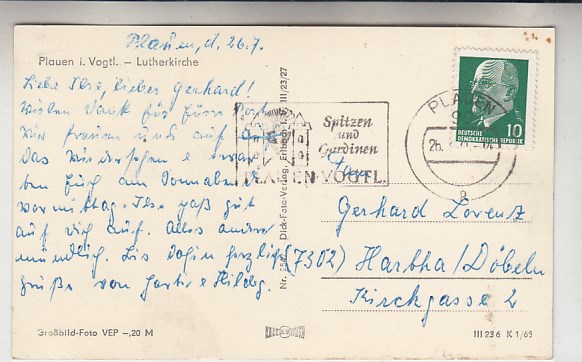 Plauen, d. 26.7.
Plauen i. Vogtl. – Lutherkirche
Liebe Ilse, lieber Gerhard!
Vielen Dank für Eure
Wir freuen uns auf
Das Wiedersehen
ben Euch am Sonnabend
vormittag. Ilse paß gut
auf Dich auf. Alles andere
mündlich. Bis dahin herzlich
grüße von
Großbild-Foto VEP –,20 M
Dick-Foto-Verlag, Erlbach i. V. III/23/27
Spitzen
und
Gardinen
PLAUEN·VOGTL.
PLAUEN
26.
DEUTSCHE
DEMOKRATISCHE REPUBLIK
10
Gerhard Lorenz
(7302) Hartha/Döbeln
Kirchgasse 2
III 23 6 K 1/69